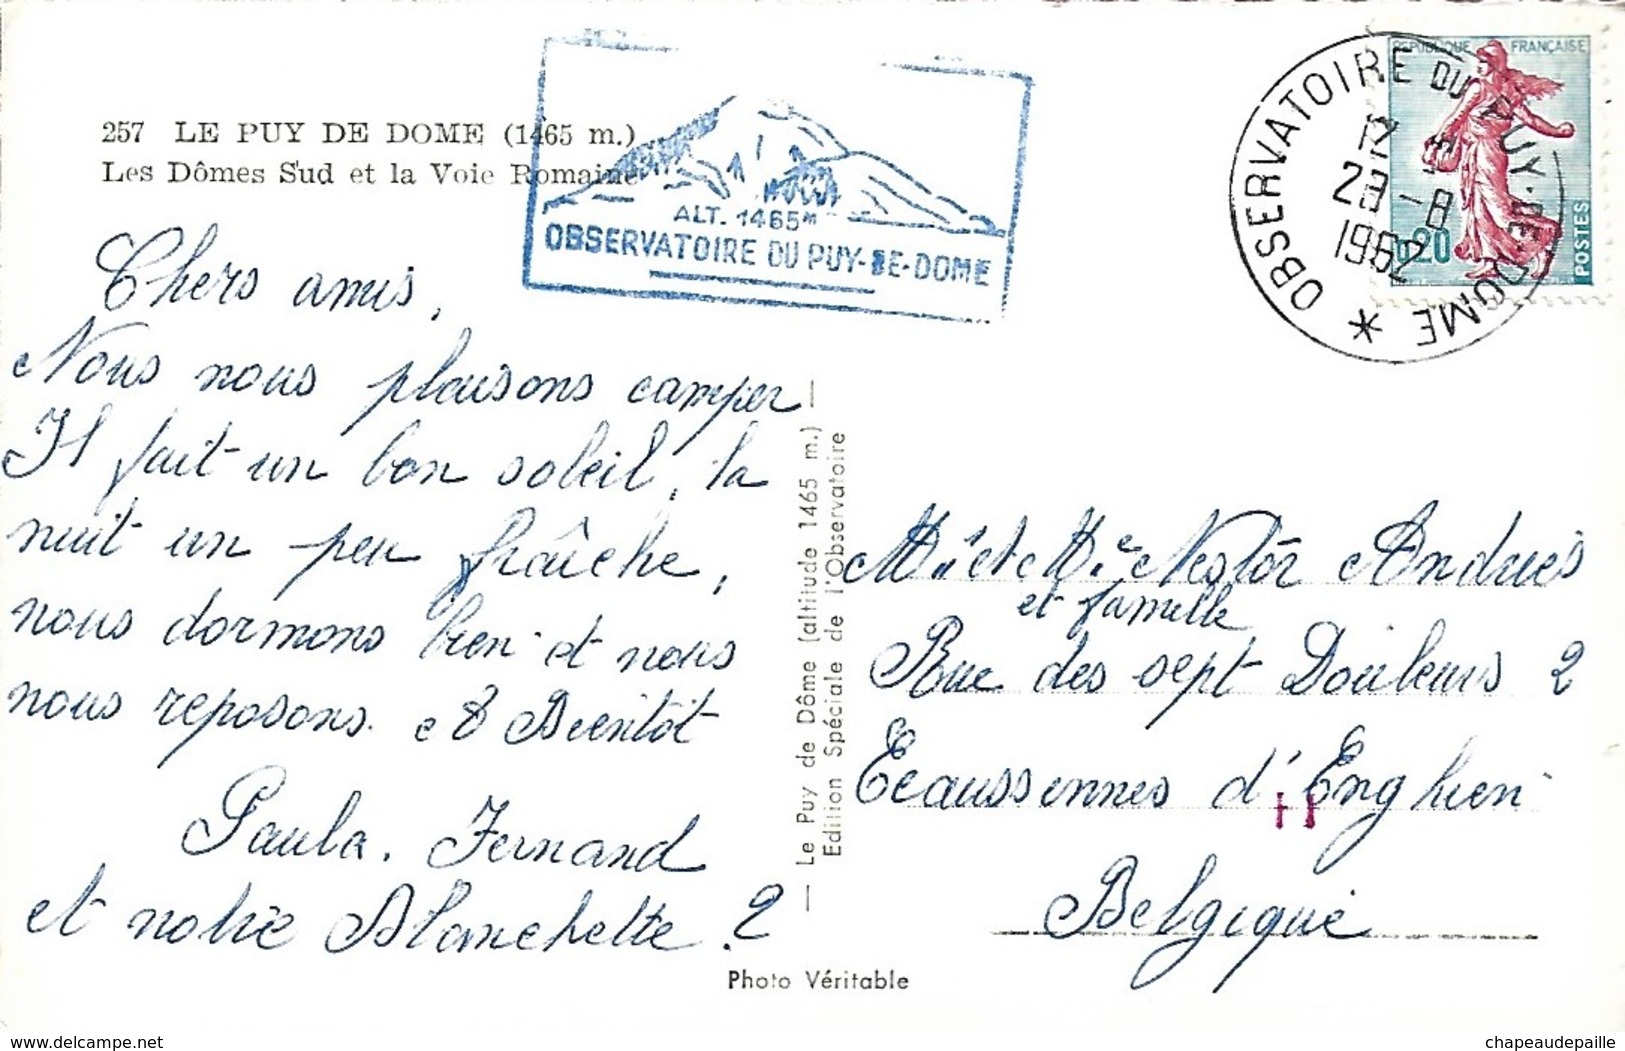 257 LE PUY DE DOME (1465 m.)
Les Dômes Sud et la Voie Romaine
ALT. 1465m
OBSERVATOIRE DU PUY-DE-DOME
OBSERVATOIRE DU PUY-DE-DOME *
12
28-8
1962
REPUBLIQUE FRANÇAISE
0,20
POSTES
Chers amis,
Nous nous plaisons camper
Il fait un bon soleil, la
nuit un peu fraîche,
nous dormons bien et nous
nous reposons. Bientôt
Paula. Fernand
et notre Blanchette.
Le Puy de Dôme (altitude 1465 m.)
Edition Spéciale de l'Observatoire
Mr et Me Nestor Andries
et famille
Rue des sept Douleurs 2
Ecaussennes d'Enghien
Belgique
Photo Véritable
www.delcampe.net
chapeaudepaille